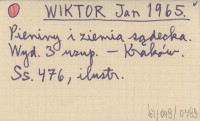 WIKTOR Jan 1965.
Pieniny i ziemia sądecka.
Wyd. 3 uzup. – Kraków.
Ss. 476, ilustr.